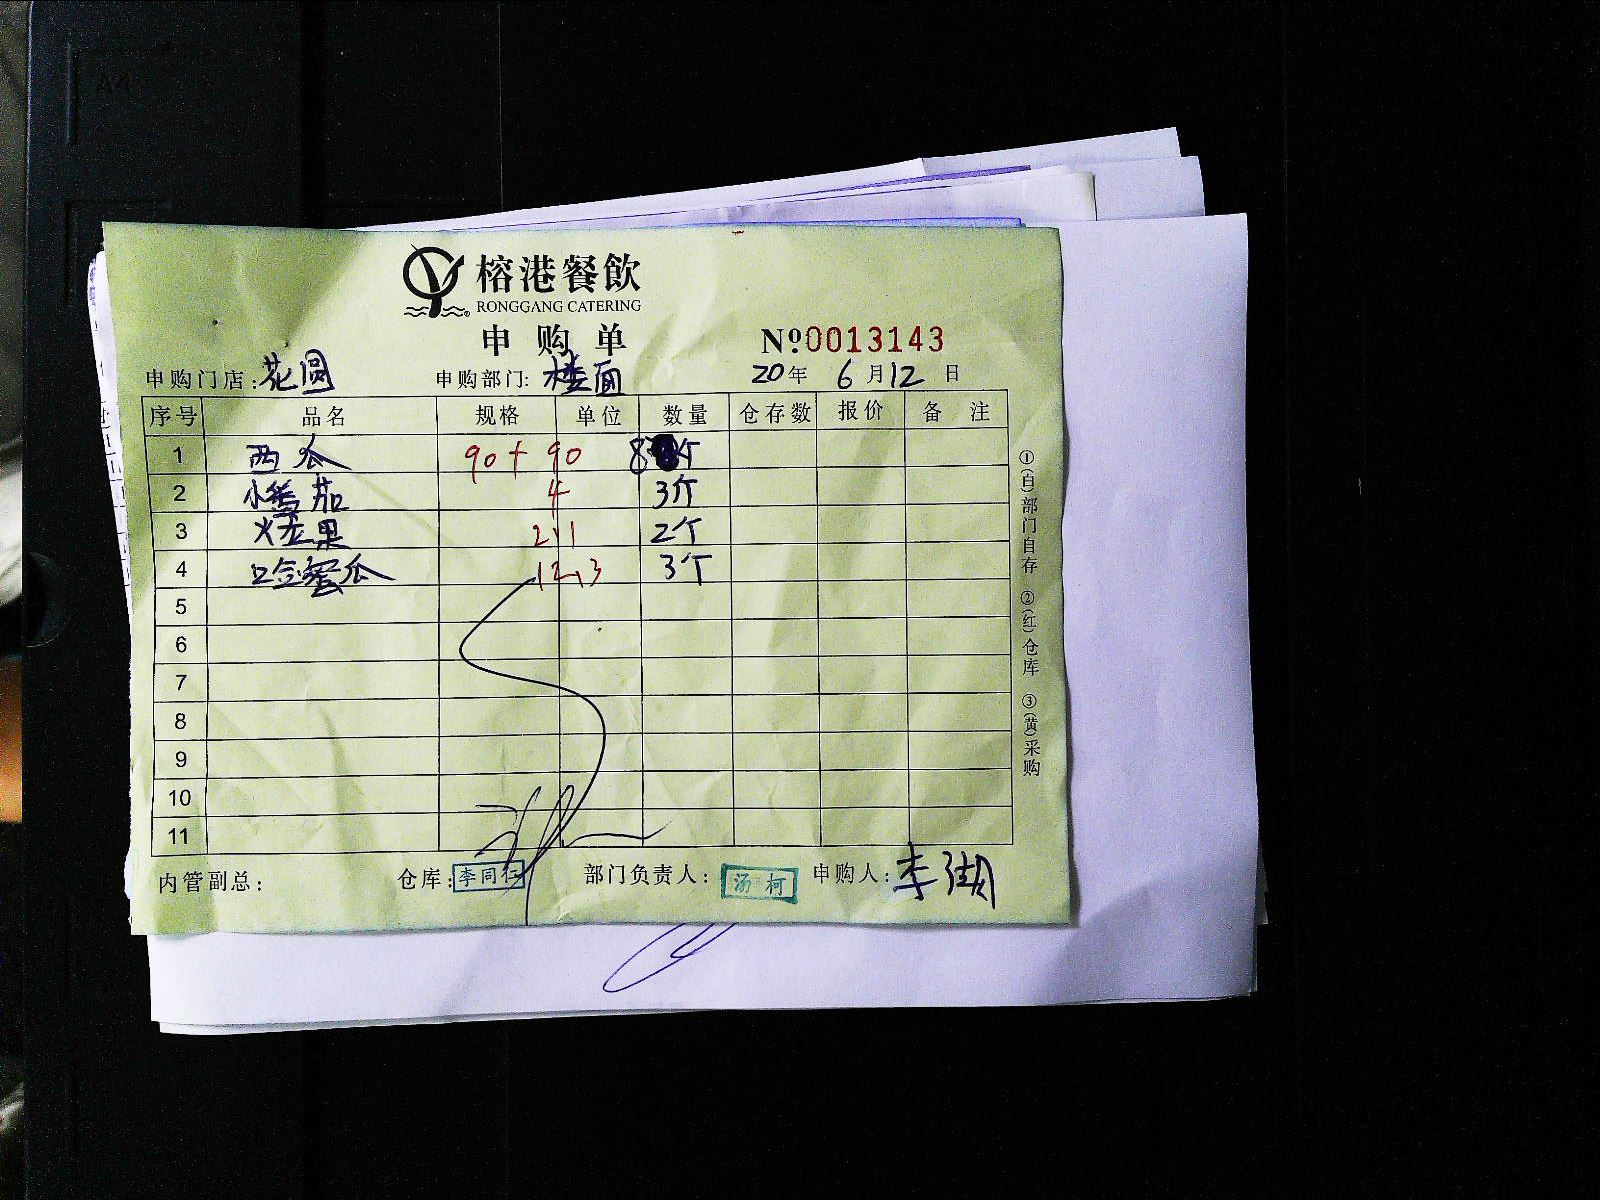 榕港餐飲
RONGGANG CATERING
申购单
Nº0013143
申购门店:花圆 申购部门:楼面 20年6月12日
序号 品名 规格 单位 数量 仓存数 报价 备注
1 西瓜 90+90 8个
2 小番茄 4 3个
3 火龙果 2.1 2个
4 蜜瓜 12.3 3个
5
6
7
8
9
10
11
内管副总: 仓库:李同仁 部门负责人:汤柯 申购人:李湖
①(白)部门自存 ②(红)仓库 ③(黄)采购
A4